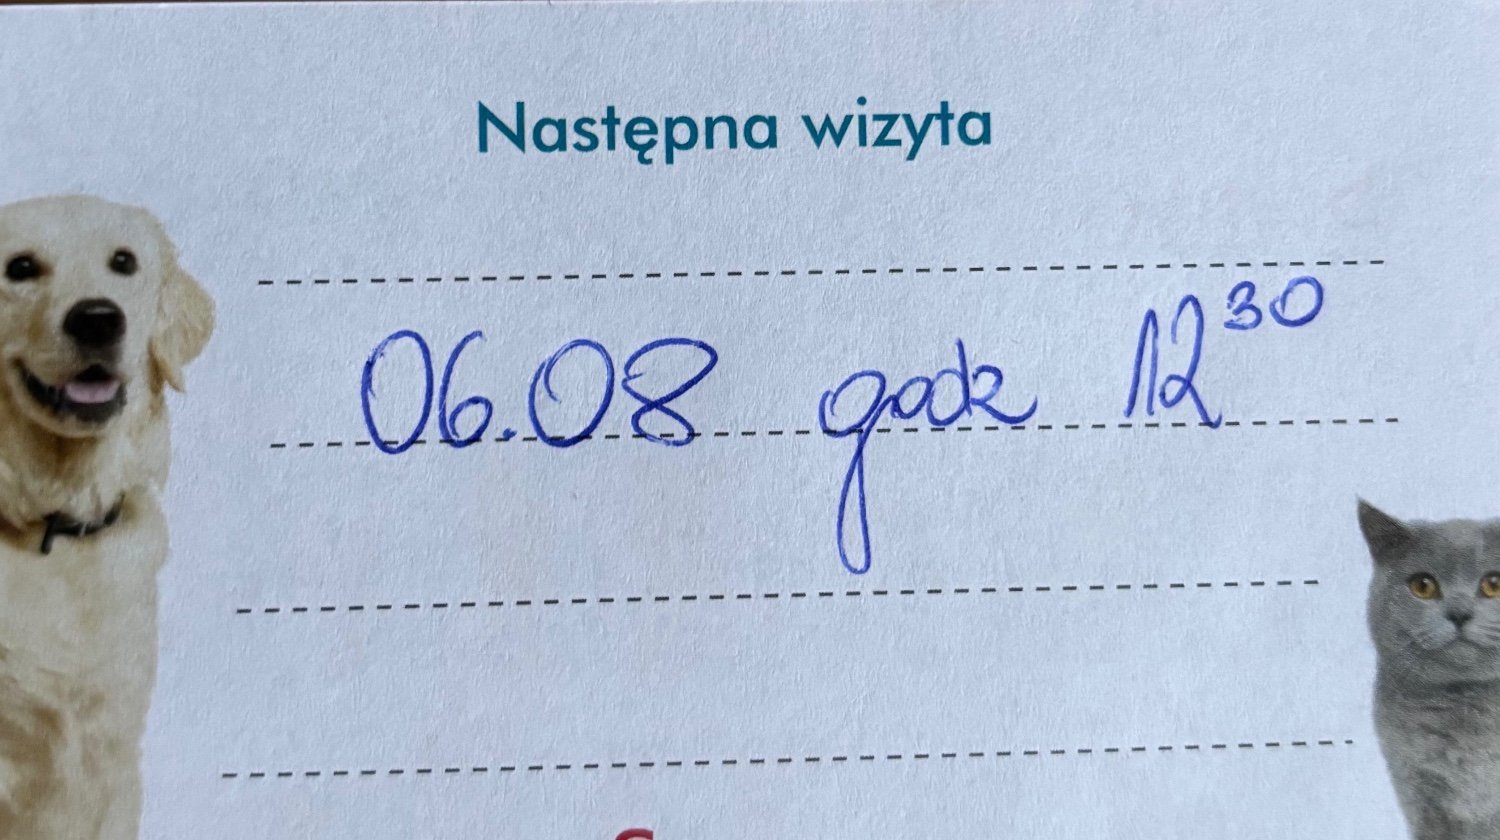 Następna wizyta
06.08 godz 12³⁰